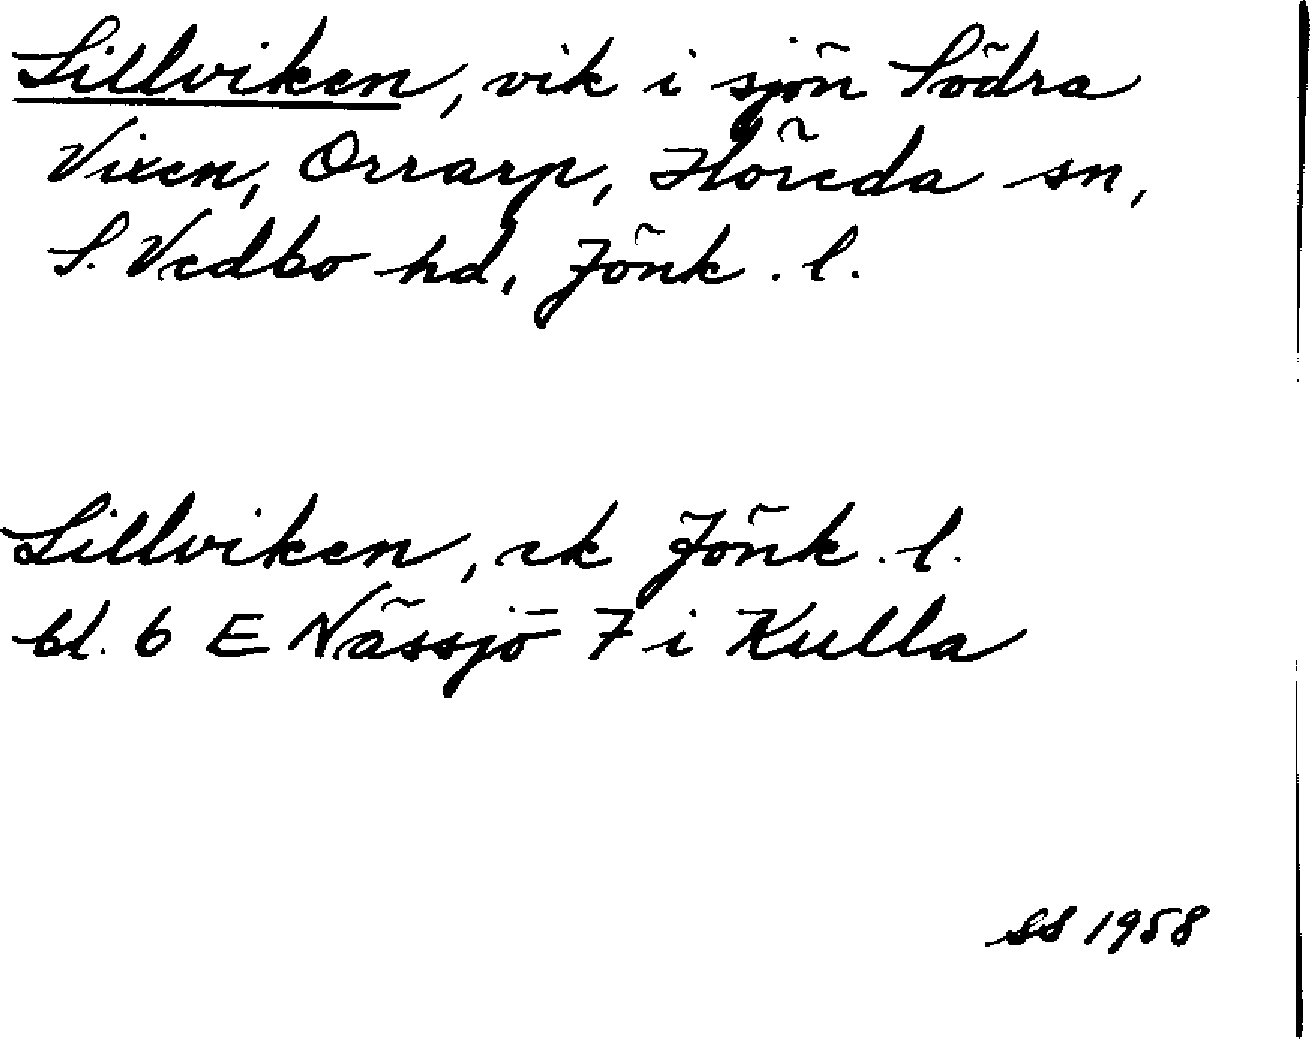 Lillviken, vik i sjön Södra
Vixen, Orrarp, Flöreda sn,
S. Vedbo hd, Jönk. l.
Lillviken, ek Jönk. l.
bl. 6 E Nässjö 7 i Kulla
SS 1958